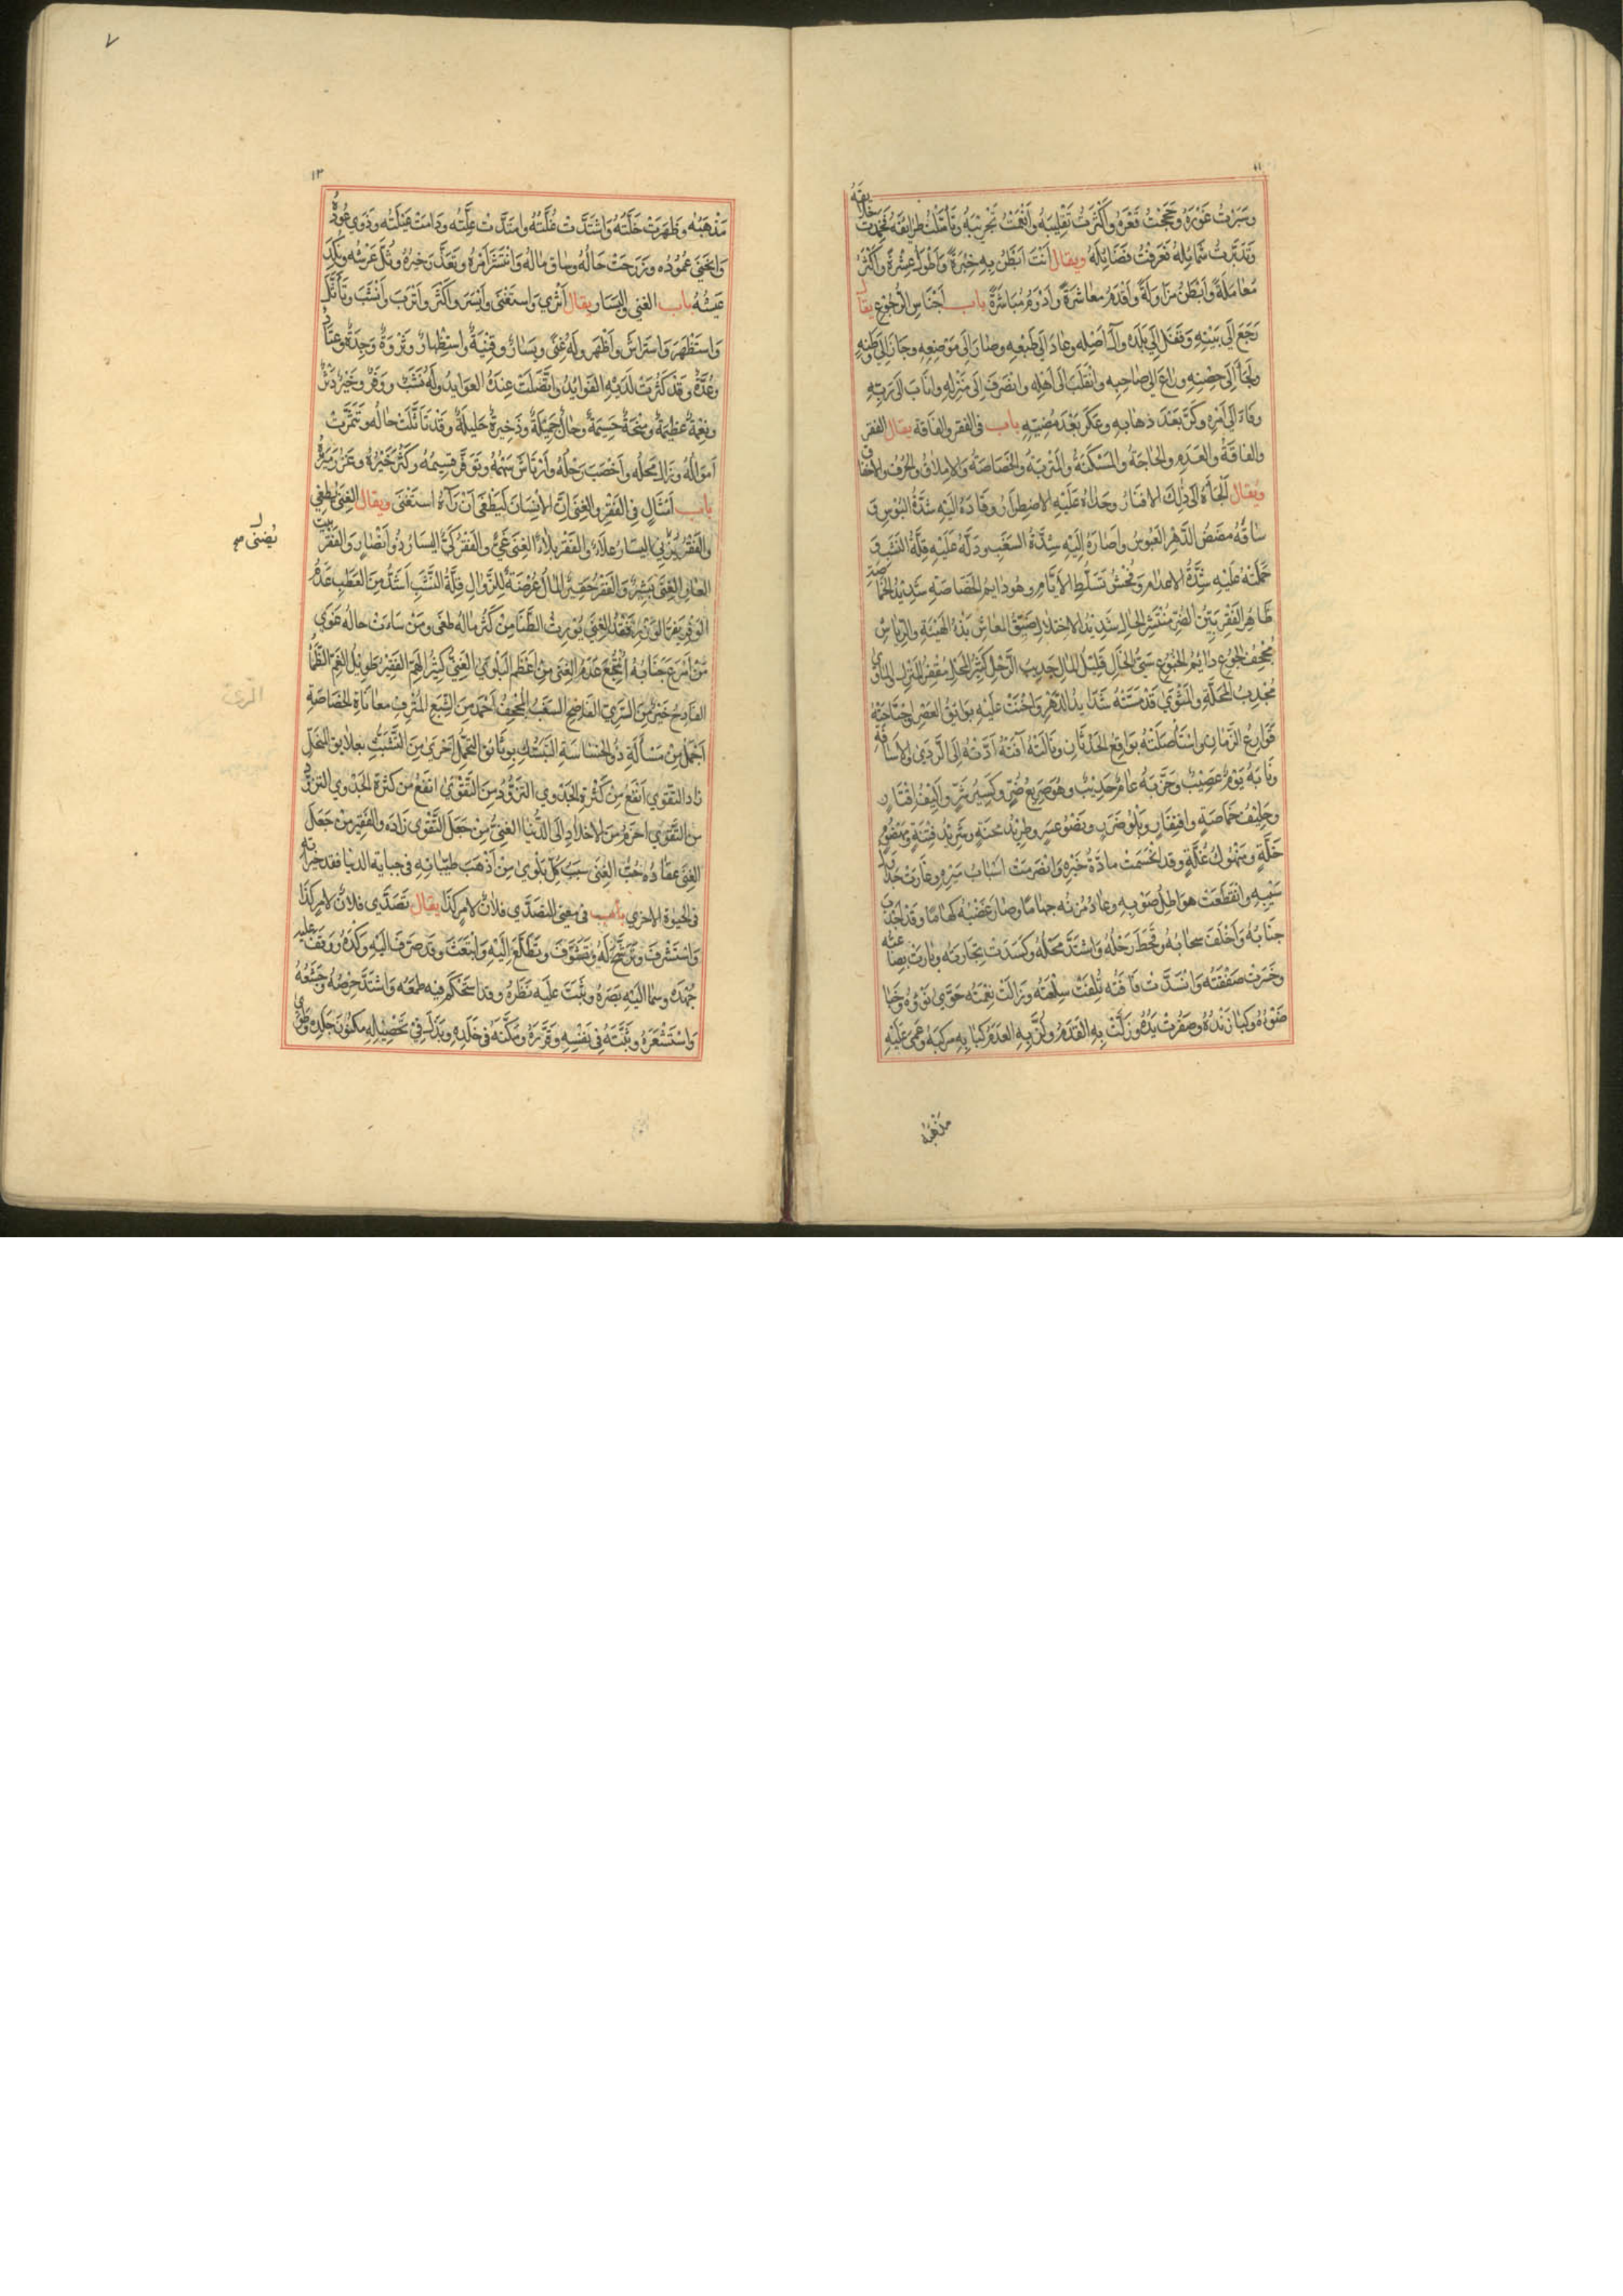 ١١
وسبرت غوره وعجمت قعره وأكثرت تقليبه وأنعمت تجريبه وتأملت طرايقه فحمدت خلايقه
وتدبرت شمائله فعرفت فضائله ويقال أنت ابطن به خبرة وأطول عشرة وأكثر
معاملة وأبطن مزاولة وأقدم معاشرة وأدوم مباشرة باب أجناس الرجوع يقال
رجع إلى بيته وقفل إلى بلده وآل أصله وعاد إلى طبعه وصار إلى موضعه وحار إلى وطنه
ولجأ إلى حضنه وراغ إلى صاحبه وانقلب إلى أهله وانصرف إلى منزله وأناب إلى ربه
وفاء إلى أمره وكر بعد ذهابه وعكر بعد مضيه باب في الفقر والفاقة يقال الفقر
والفاقة والعدم والحاجة والمسكنة والمتربة والخصاصة والإملاق والحرف والاخفاق
ويقال ألجأه إلى ذلك الاقتار وحداه عليه الاضطرار وقاده إليه شدة البؤس
ساقه مضض الدهر العبوس وأصاره إليه شدة السغب ودله عليه قلة النشب و
حملته عليه شدة الإعدام وفحش تسلط الأيام وهو دايم الخصاصة شديد الخماصة
ظاهر الفقر بين الضر منتشر الحال شديد الاختلال ضيق المعاش بذ الهيئة والرياش
مجحف الجوع دايم الخنوع سيئ الحال قليل المال جديب الرحل كثير المحل مقفر المنزل والمأوى
مجدب المحلة والمثوى قد مسته شدايد الدهر وأخنت عليه بوايق العصر واجتاحته
قوارع الزمان واستأصلته بواقع الحدثان ونالته آفته أدته إلى الردى والاسافة
ونابه يوم عصيب وحزبه عام جديب وهو صريع ضر وكسير شر وأليف اقتار
وحليف خماصة وافتقار وبلو ضر ونضو عسر وطريد محنة وشريد فتنة
خلة ومنهوك غلة وقد انحسمت مادة خيره وانصرمت أسباب ميره وغارت
سيبه وانقطعت هواطل صوبه وعاد مزنه جهاما وصار عضبه كهاما وقد أجدب
جنابه وأخلف سحابه وقحط رحله واشتد محله وكسدت تجارته وبارت بضاعته
وخسرت صفقته وانسدت فاقته تلفت سلعته وزالت نعمته خوى نوؤه وخبا
ضوؤه وكبا زنده وصفرت يده وزلت به القدم ولز به العدم كبا به مركبه وعمى عليه
مذهبه
٧
١٣
مذهبه وظهرت خلته واشتدت غلته وامتدت علته ودامت عيلته وذوى عوده
وانحنى عموده وتزحزحت حاله وحاق ماله وانتشر أمره وتعذر خيره وثل عرشه ونكد
عيشه باب الغنى واليسار يقال أثرى واستغنى وأيسر وأكثر وأترب وأنشب وتأثل
واستظهر واستراش وأظهر وله غنى ويسار وقنية واستظهار وثروة وجدة وعتاد
وعدة وقد كثرت لديه الفوايد واتصلت عنده العوايد وله نشب ووفر وخير دثر
ونعمة عظيمة ومنحة جسيمة وحال جميلة وذخيرة جليلة وقد تأثلت حاله وتثمرت
أمواله وزال محله وأخصب رحله وارتاش سهمه وتوفر قسمه وكثر خيره وغزر ميره
باب أمثال في الفقر والغنى إن الإنسان ليطغى أن رآه استغنى ويقال الغنى يطغي
والفقر يزري اليسار علاء والفقر بلاء الغنى غي والفقر كي اليسار ذو أنصار والفقر بيت
العار الغنى بشير والفقر حقير المال عرضة للزوال قلة النشب أشد من العطب عدم
الوفر يفر الوزر فقد الغنى يورث الظنا من كثر ماله طغى ومن ساءت حاله هوى
من أمرع جنابه انتجع عدم الغنى من أعظم البلوى الغني كثير الهم الفقير طويل الغم الظمأ
الفادح خير من الري الفاضح السغب المجحف أحمد من الشبع المترف معاناة الخصاصة
أجمل من مسألة ذوي الخساسة التمسك بوثائق التجمل أحرى من التشبث بعلايق البخل
زاد التقوى أنفع من كثرة الجدوى التزود من التقوى انفع من كثرة الجدوى التزود
من التقوى أحزم من الاخلاد إلى الدنيا الغني من جعل التقوى زاده والفقير من جعل
الغنى عتاده حب الغنى سبب كل بلوى من أذهب طيباته في حياته الدنيا فقد خزانه
في الحيوة الاخرى باب في معنى التصدي فلان لامر كذا يقال تصدى فلان لامر كذا
واستشرف وترشح له وتشوف وتطلع إليه وانبعث وقد صرف إليه وكده ووقف عليه
جهده وسما إليه بصره وثبت عليه نظره وقد استحكم فيه طمعه واشتد حرصه وجشعه
واستشعره وبثه في نفسه وقرره ومكنه في خلده وبذل في تحصيله مكنون جلده وطوى
يضني صح